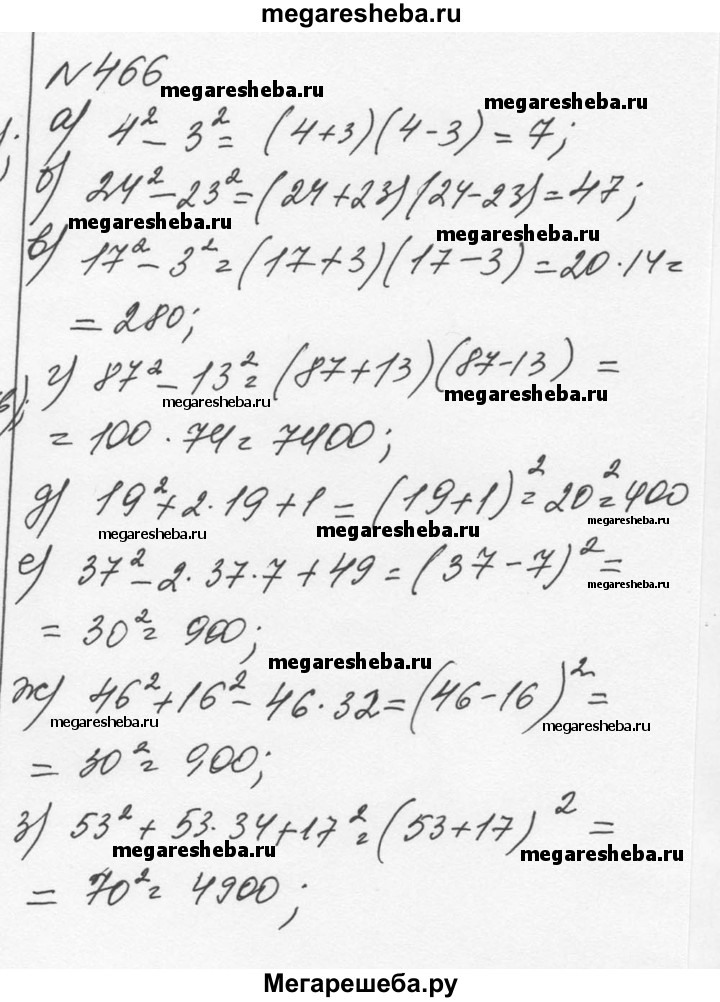 megaresheba.ru
N 466
megaresheba.ru
megaresheba.ru
а) 4² - 3² = (4+3)(4-3) = 7;
б) 24² - 23² = (24+23)(24-23) = 47;
megaresheba.ru
megaresheba.ru
в) 17² - 3² = (17+3)(17-3) = 20·14 =
= 280;
г) 87² - 13² = (87+13)(87-13) =
megaresheba.ru
megaresheba.ru
= 100·74 = 7400;
д) 19² + 2·19 + 1 = (19+1)² = 20² = 400
megaresheba.ru
megaresheba.ru
megaresheba.ru
е) 37² - 2·37·7 + 49 = (37-7)² =
megaresheba.ru
= 30² = 900;
megaresheba.ru
ж) 46² + 16² - 46·32 = (46-16)² =
megaresheba.ru
megaresheba.ru
= 30² = 900;
з) 53² + 53·34 + 17² = (53+17)² =
megaresheba.ru
megaresheba.ru
= 70² = 4900;
Мегарешеба.ру